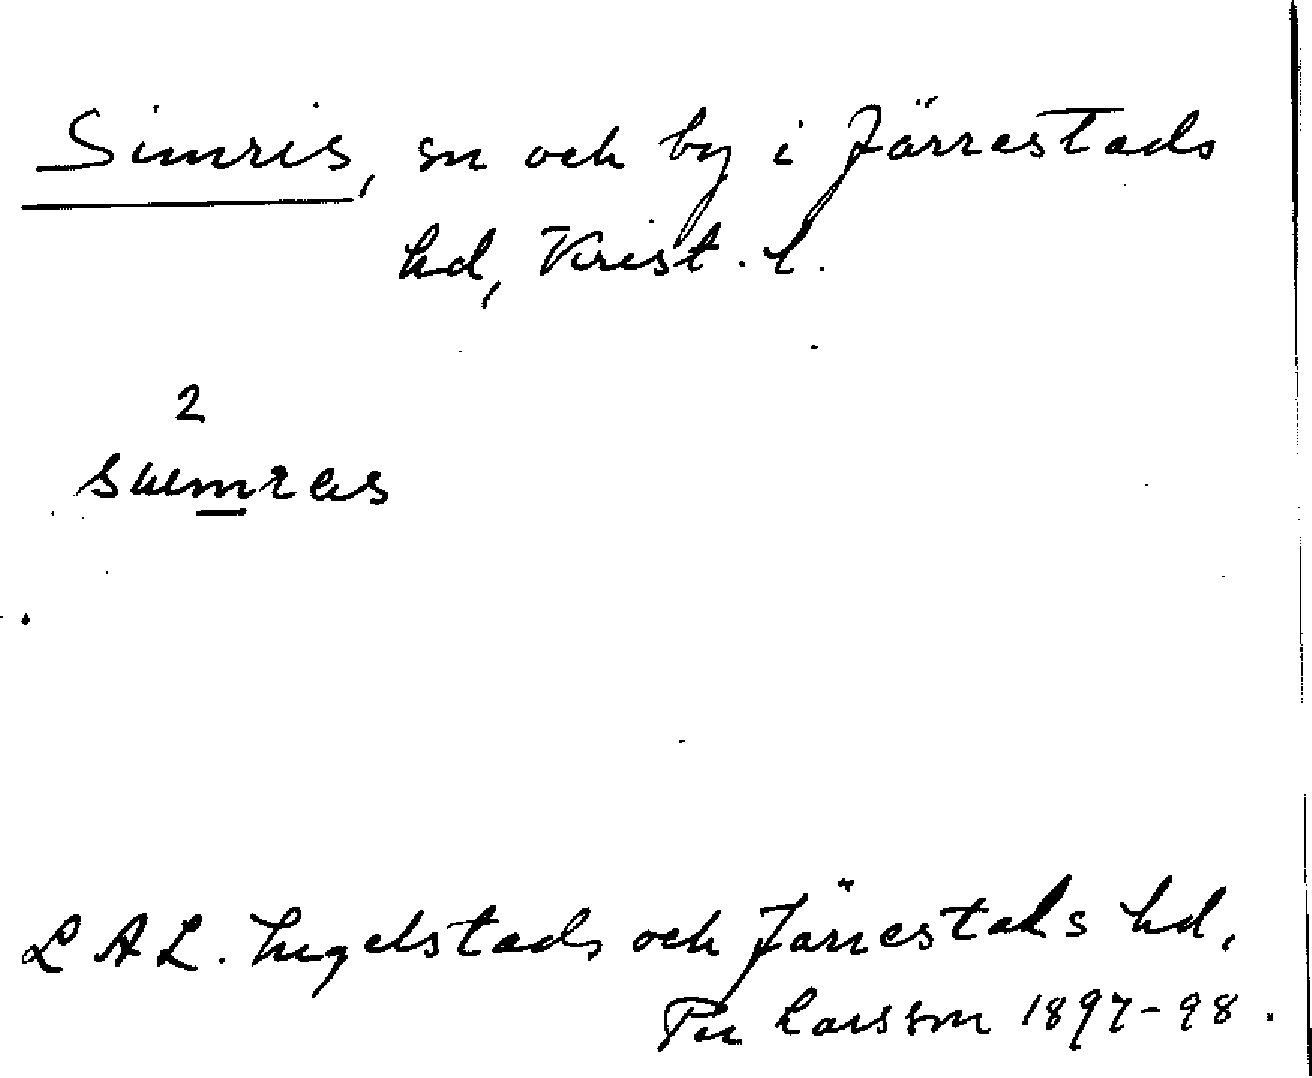 Simris, sn och by i Järrestads
hd, Krist. l.
2
LAL. Ingelstads och Järrestads hd,
Per Larsson 1897-98.